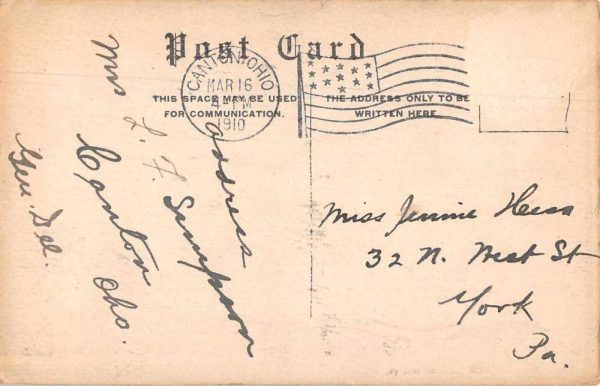 Post Card
CANTON, OHIO
MAR 16
PM
1910
THIS SPACE MAY BE USED
FOR COMMUNICATION.
THE ADDRESS ONLY TO BE
WRITTEN HERE.
address
Mrs L. F. Simpson
Canton Oho.
Gen. Del.
Miss Jennie Hess
32 N. West St
York
Pa.